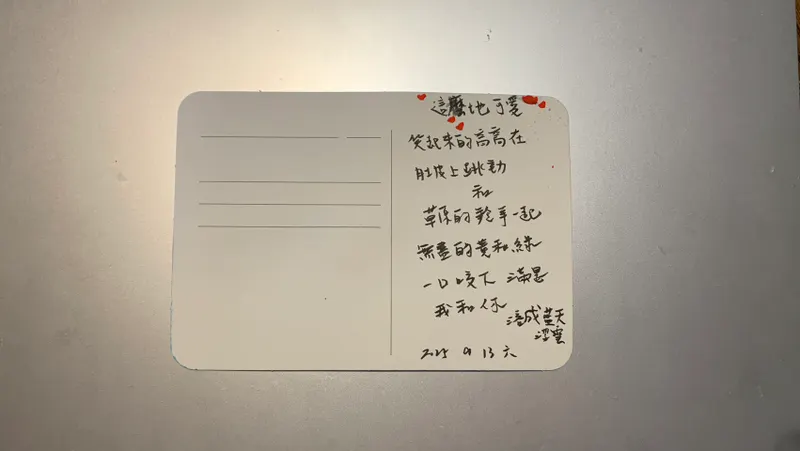 這麼地可愛
笑起來的高高在
肚皮上跳動
和
草原的歌手一起
無盡的黃和綠
一口咬下 滿是
我和你
2025 9 13 六